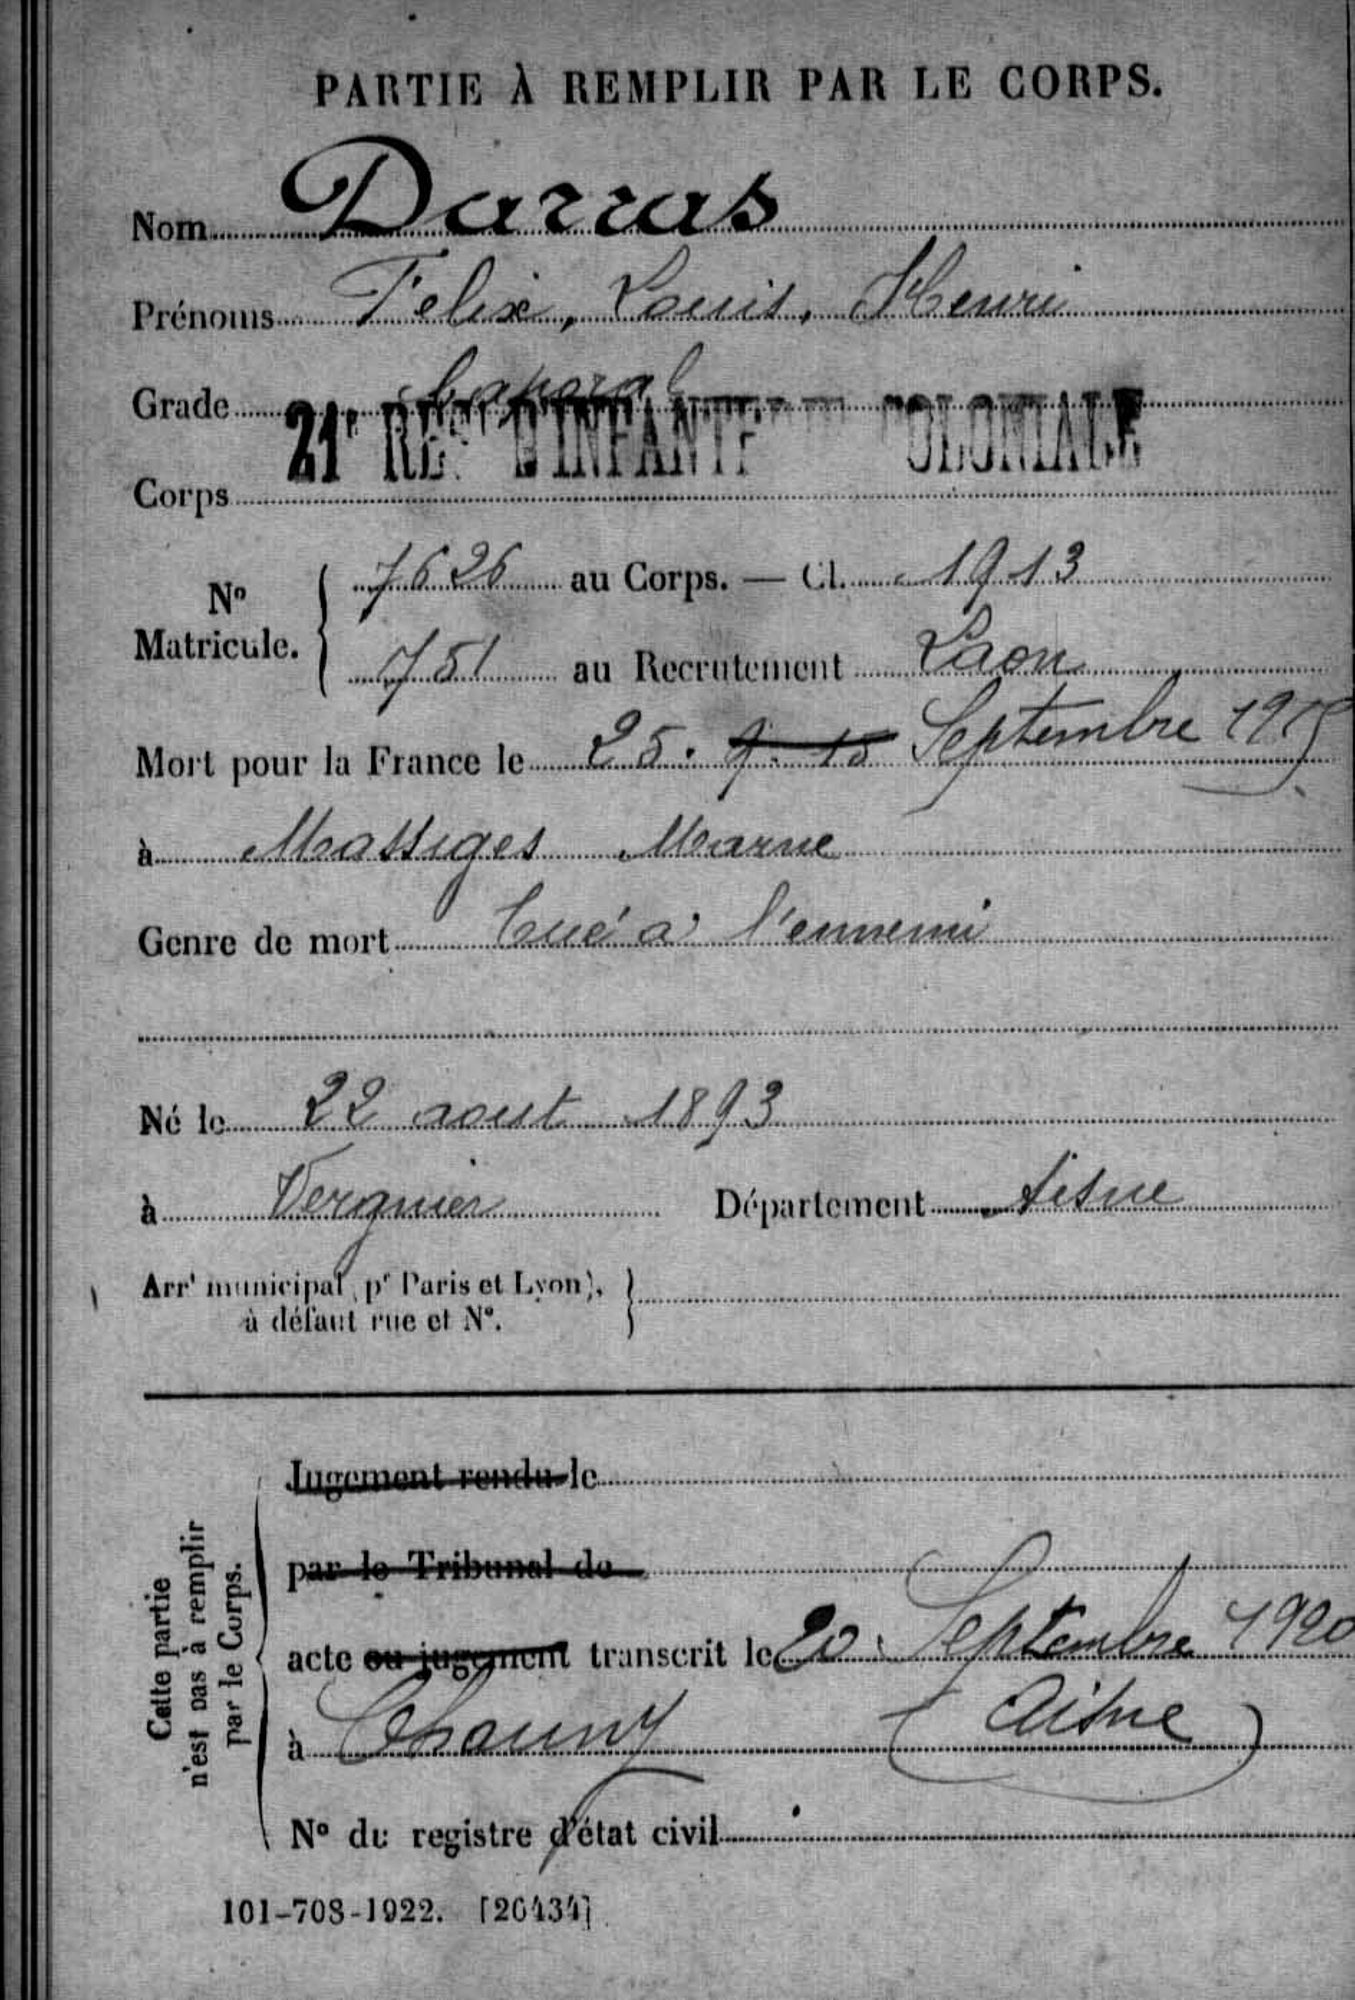 PARTIE À REMPLIR PAR LE CORPS.
Nom Darras
Prénoms Felix, Louis, Henri
Grade Caporal
21e REGt D'INFANTERIE COLONIALE
Corps
No Matricule. 7626 au Corps. — Cl. 1913
751 au Recrutement Laon
Mort pour la France le 25. 9. 15 Septembre 1915
à Massiges Marne
Genre de mort tué à l'ennemi
Né le 22 aout 1893
à Tergnier Département Aisne
Arrt municipal (pr Paris et Lyon),
à défaut rue et No.
Cette partie
n'est pas à remplir
par le Corps.
Jugement rendu le
par le Tribunal de
acte ou jugement transcrit le 20 Septembre 1920
à Chauny (Aisne)
No du registre d'état civil
101-708-1922. [26434]